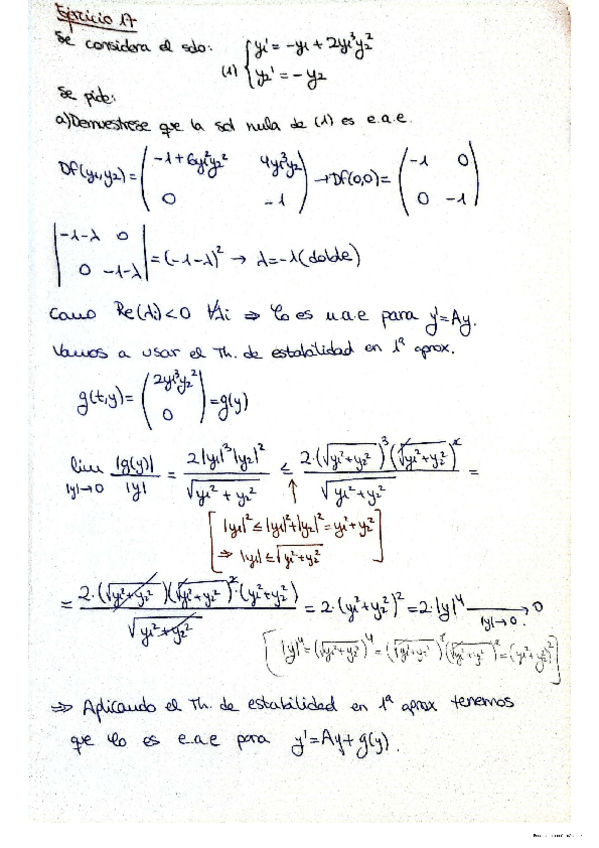 Ejercicio 17
Se considera el sdo: (1) { y₁' = -y₁ + 2y₁³y₂²
y₂' = -y₂
Se pide:
a) Demuéstrese que la sol nula de (1) es e.a.e.
Df(y₁,y₂) = ( -1 + 6y₁²y₂² 4y₁³y₂ ; 0 -1 ) → Df(0,0) = ( -1 0 ; 0 -1 )
| -1-λ 0 ; 0 -1-λ | = (-1-λ)² → λ = -1 (doble)
Como Re(λi) < 0 ∀λi ⇒ φ₀ es u.a.e para y' = Ay.
Vamos a usar el Th. de estabilidad en 1ª aprox.
g(t,y) = ( 2y₁³y₂² ; 0 ) = g(y)
lim |y|→0 |g(y)| / |y| = 2|y₁|³|y₂|² / √(y₁² + y₂²) ≤ 2·(√(y₁²+y₂²))³(√(y₁²+y₂²))² / √(y₁²+y₂²) =
↑
[ |y₁|² ≤ |y₁|²+|y₂|² = y₁²+y₂²
⇒ |y₁| ≤ √(y₁²+y₂²) ]
= 2·(√(y₁²+y₂²))(√(y₁²+y₂²))²·(y₁²+y₂²) / √(y₁²+y₂²) = 2·(y₁²+y₂²)² = 2·|y|⁴ → 0
|y|→0
[ |y|⁴ = (√(y₁²+y₂²))⁴ = (√(y₁²+y₂²))²(√(y₁²+y₂²))² = (y₁²+y₂²)² ]
⇒ Aplicando el Th. de estabilidad en 1ª aprox tenemos
que φ₀ es e.a.e para y' = Ay + g(y).